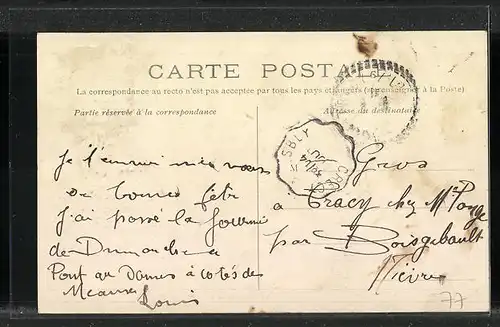 CARTE POSTALE
La correspondance au recto n'est pas acceptée par tous les pays étrangers (se renseigner à la Poste)
Partie réservée à la correspondance
Adresse du destinataire
Je vous
de bonne fête
J'ai passé la
de Dimanche a
Pont aux Dames a cotés de
Meaux
Louis
Gros
a Tracy chez Mr
par Boisgibault
Nièvre
77